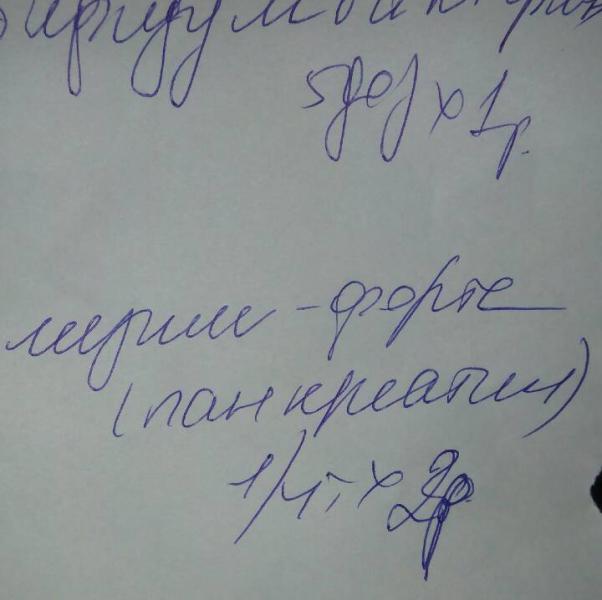 бифидумбактерин
5 доз х 1р.
мезим - форте
(панкреатин)
1/4 т х 2р